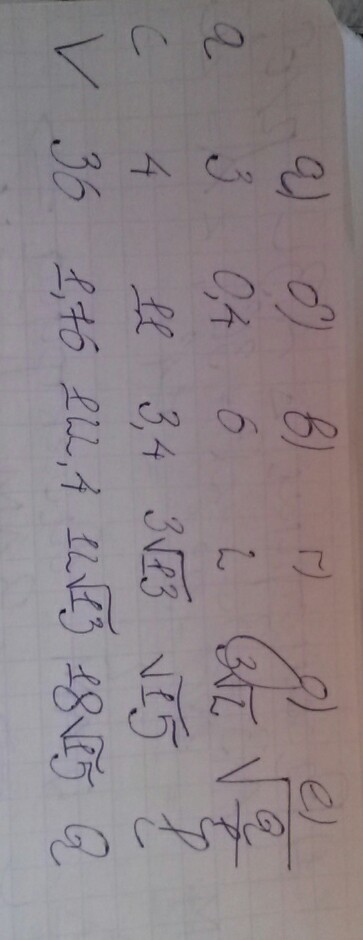 а) б) в) г) д) е)
a 3 0,4 6 2 3√2 √(Q/p)
c 4 11 3,4 3√13 √15 p
V 36 1,76 122,4 12√13 18√15 Q